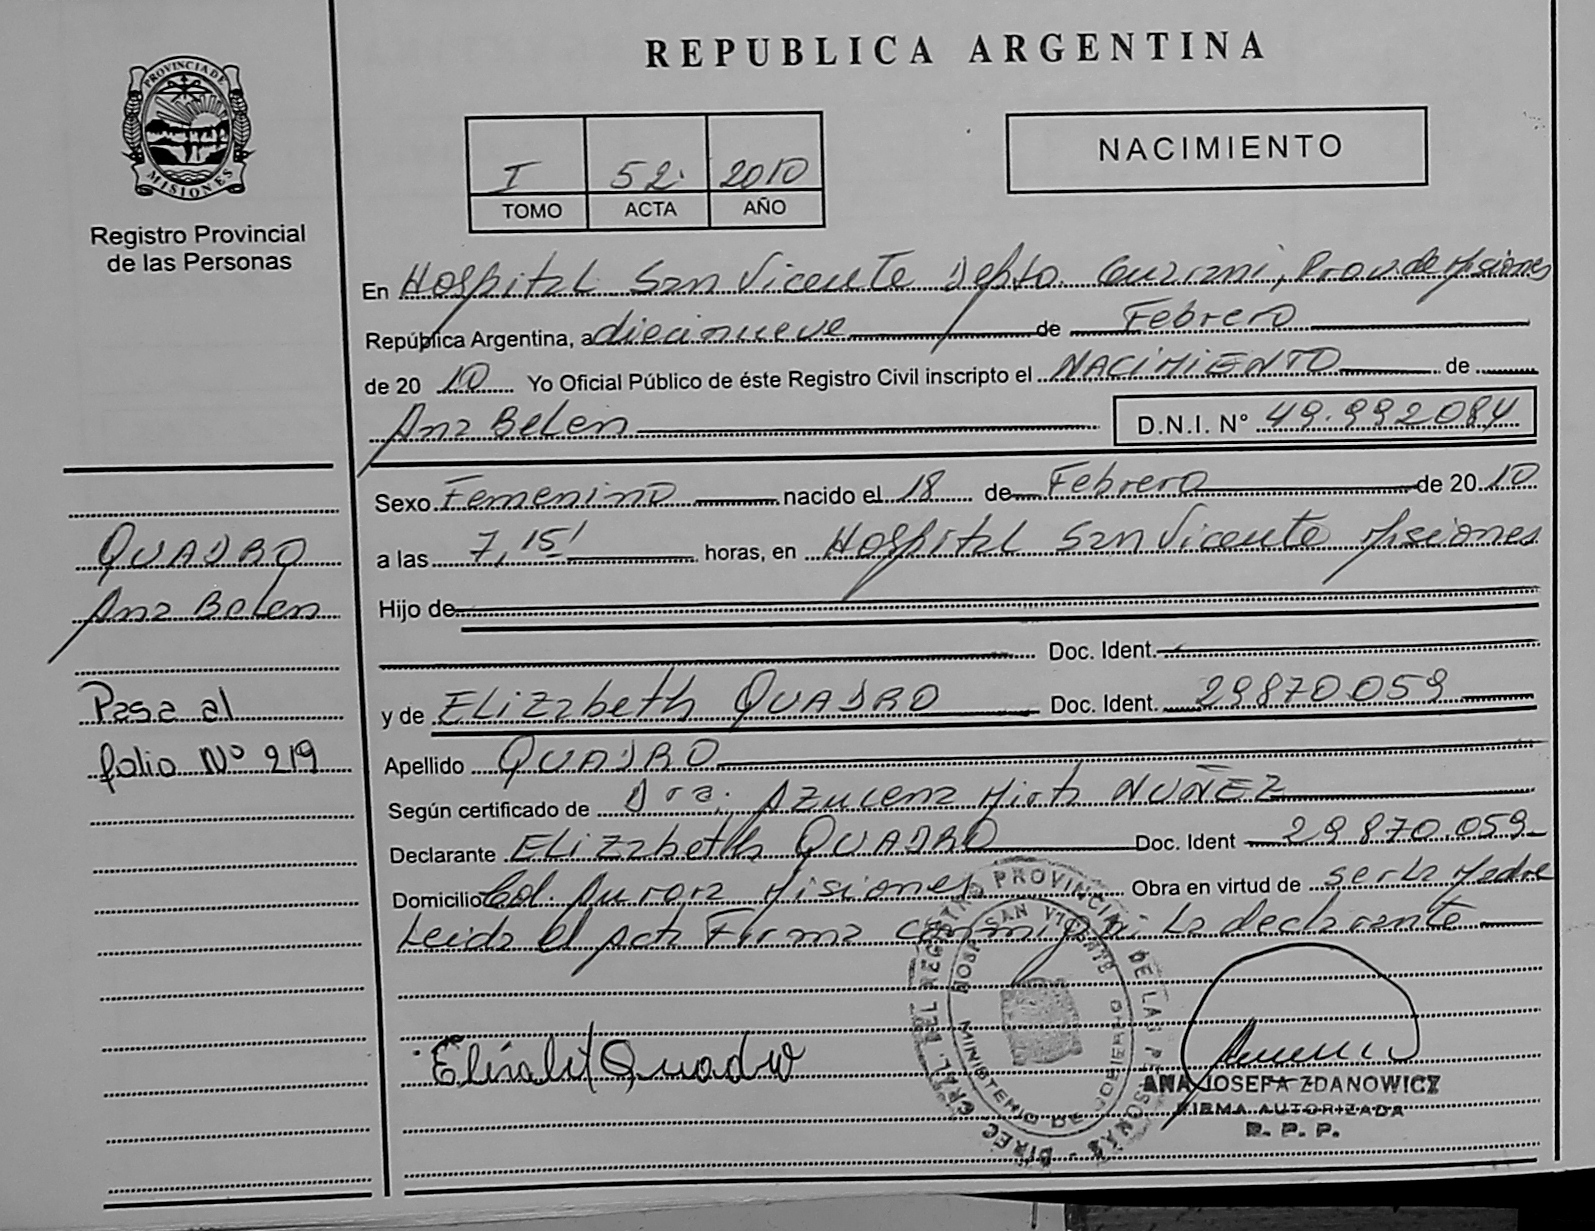 REPUBLICA ARGENTINA
PROVINCIA DE
MISIONES
Registro Provincial
de las Personas
I 52 2010
TOMO ACTA AÑO
NACIMIENTO
En Hospital San Vicente Depto. Guarani, Prov. de Misiones
República Argentina, a diecinueve de Febrero
de 20 10 Yo Oficial Público de éste Registro Civil inscripto el NACIMIENTO de
Ana Belen D.N.I. Nº 49.992084
Sexo Femenino nacido el 18 de Febrero de 20 10
a las 7,15' horas, en Hospital San Vicente Misiones
Hijo de
Doc. Ident.
y de Elizabeth QUADRO Doc. Ident. 29870059
Apellido QUADRO
Según certificado de Dra. Azucena Mirta NUÑEZ
Declarante Elizabeth QUADRO Doc. Ident 29870.059
Domicilio Col. Aurora Misiones Obra en virtud de ser la Madre
Leida el Acta Firma conmigo la declarante
QUADRO
Ana Belen
Pasa al
folio Nº 219
Elisabet Quadro
DIREC GRAL. DEL REGISTRO PROVINCIAL DE LAS PERSONAS
HOSP. SAN VICENTE
MINISTERIO DE GOBIERNO
ANA JOSEFA ZDANOWICZ
FIRMA AUTORIZADA
R. P. P.